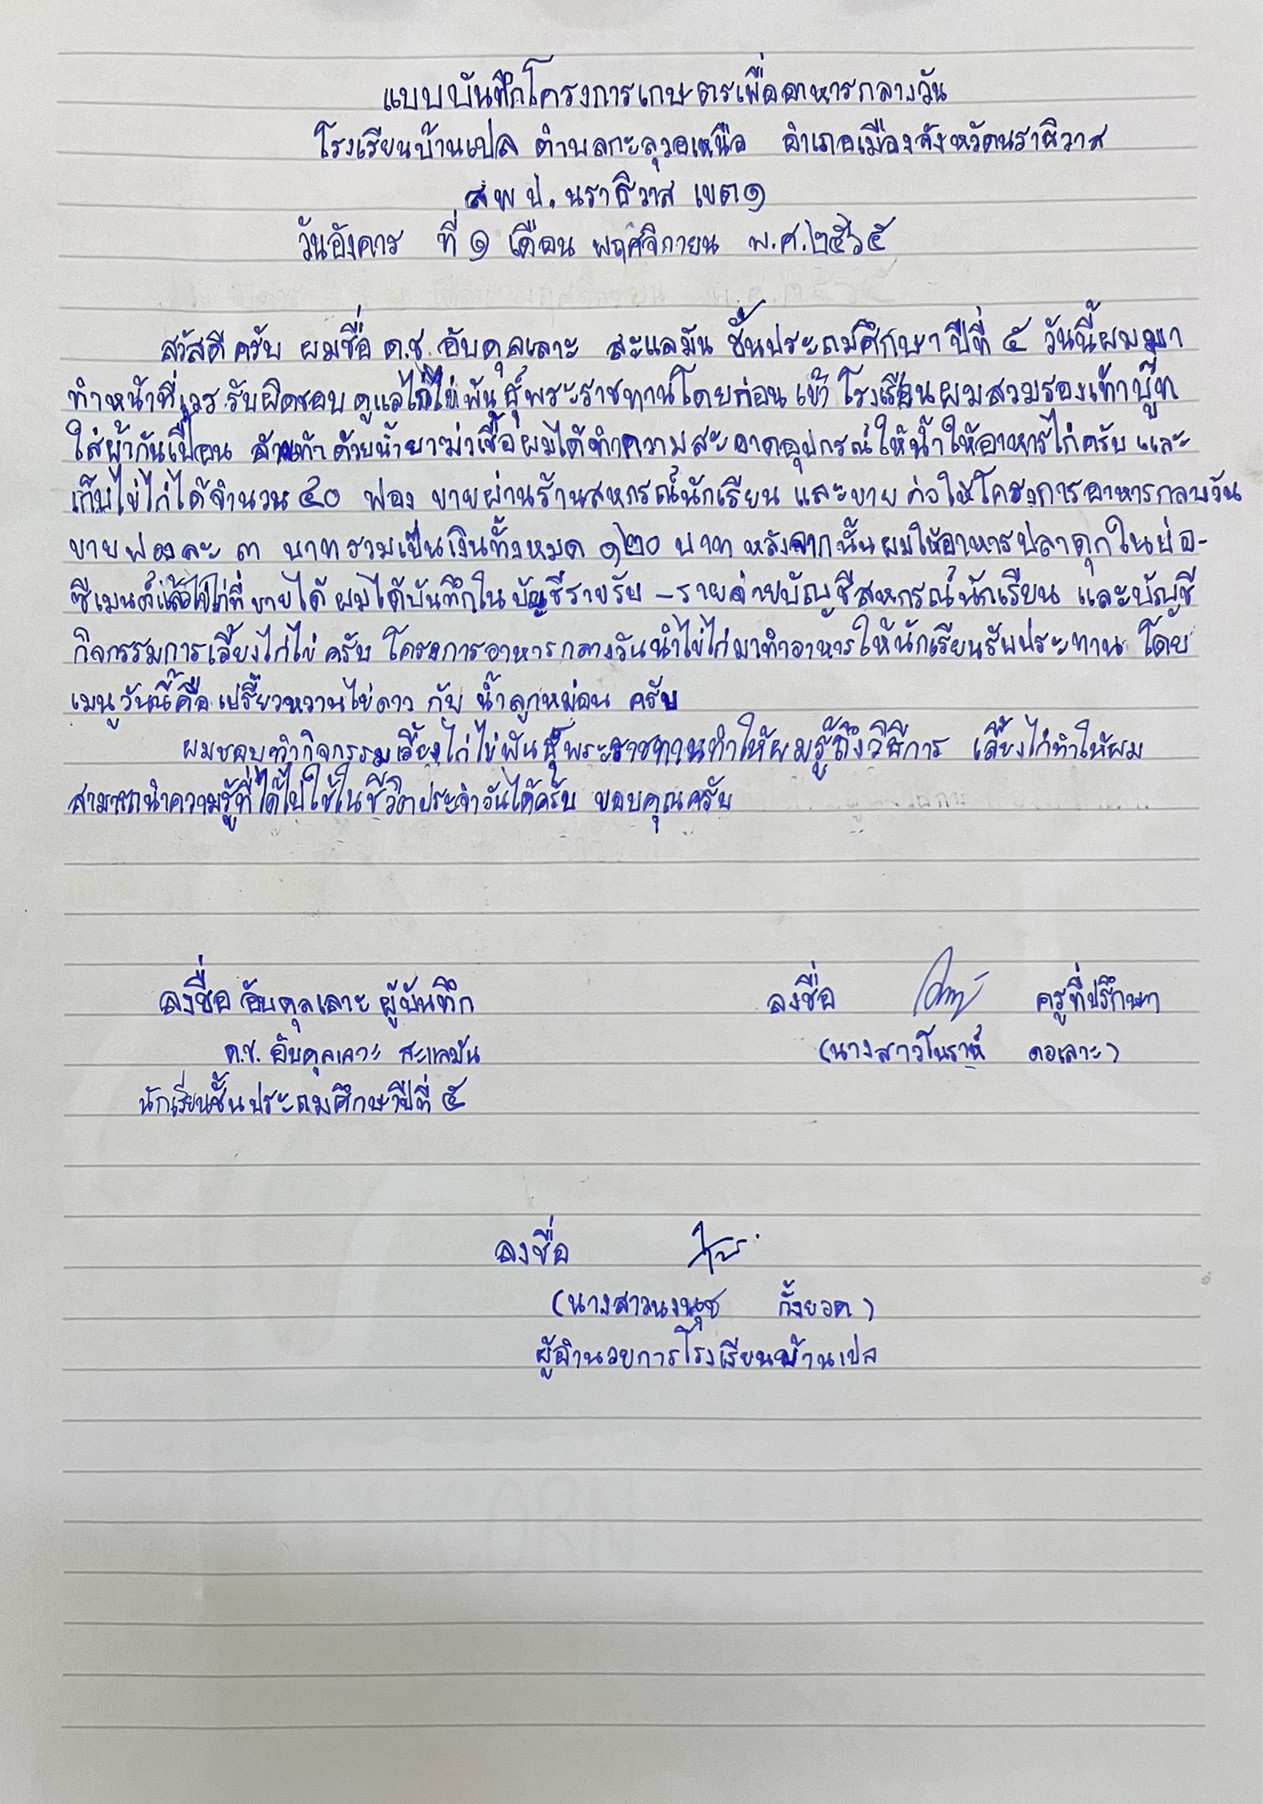 แบบบันทึกโครงการเกษตรเพื่ออาหารกลางวัน
โรงเรียนบ้านเปล ตำบลกะลุวอเหนือ อำเภอเมืองจังหวัดนราธิวาส
สพป.นราธิวาส เขต๑
วันอังคาร ที่ ๑ เดือน พฤศจิกายน พ.ศ.๒๕๖๕
สวัสดีครับ ผมชื่อ ด.ช. อับดุลเลาะ สะแลมัน ชั้นประถมศึกษาปีที่ ๕ วันนี้ผมมา
ทำหน้าที่เวรรับผิดชอบดูแลไก่ไข่พันธุ์พระราชทานโดยก่อนเข้าโรงเรือนผมสวมรองเท้าบู๊ท
ใส่ผ้ากันเปื้อน ล้างเท้าด้วยน้ำยาฆ่าเชื้อผมได้ทำความสะอาดอุปกรณ์ให้น้ำให้อาหารไก่ครับ และ
เก็บไข่ไก่ได้จำนวน ๔๐ ฟอง ขายผ่านร้านสหกรณ์นักเรียน และขายต่อให้โครงการอาหารกลางวัน
ขายฟองละ ๓ บาทรวมเป็นเงินทั้งหมด ๑๒๐ บาท หลังจากนั้นผมให้อาหารปลาดุกในบ่อ-
ซีเมนต์แล้วไข่ไก่ที่ขายได้ผมได้บันทึกในบัญชีรายรับ-รายจ่ายบัญชีสหกรณ์นักเรียน และบัญชี
กิจกรรมการเลี้ยงไก่ไข่ครับ โครงการอาหารกลางวันนำไข่ไก่มาทำอาหารให้นักเรียนรับประทาน โดย
เมนูวันนี้คือ เปรี้ยวหวานไข่ดาว กับ น้ำลูกหม่อน ครับ
ผมชอบทำกิจกรรมเลี้ยงไก่ไข่พันธุ์พระราชทานทำให้ผมรู้ถึงวิธีการ เลี้ยงไก่ทำให้ผม
สามารถนำความรู้ที่ได้ไปใช้ในชีวิตประจำวันได้ครับ ขอบคุณครับ
ลงชื่อ อับดุลเลาะ ผู้บันทึก
ด.ช. อับดุลเลาะ สะแลมัน
นักเรียนชั้นประถมศึกษาปีที่ ๕
ลงชื่อ ครูที่ปรึกษา
(นางสาวโนราห์ ดอเลาะ)
ลงชื่อ
(นางสาวนงนุช กั้งยอด)
ผู้อำนวยการโรงเรียนบ้านเปล